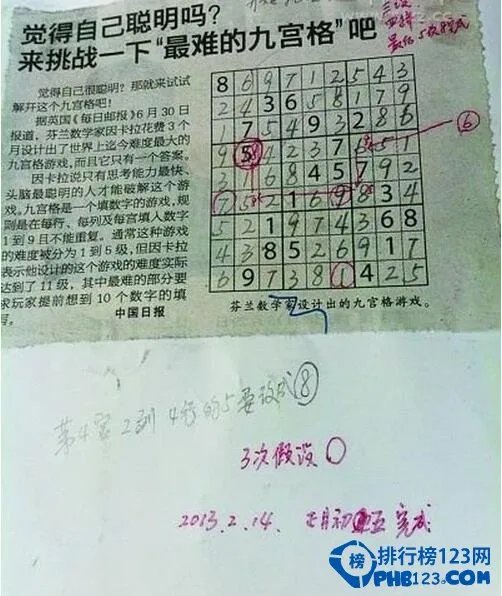 觉得自己聪明吗？
来挑战一下“最难的九宫格”吧
觉得自己很聪明？那就来试试
解开这个九宫格吧！
据英国《每日邮报》6月30日
报道，芬兰数学家因卡拉花费3个
月设计出了世界上迄今难度最大的
九宫格游戏，而且它只有一个答案。
因卡拉说只有思考能力最快、
头脑最聪明的人才能破解这个游
戏。九宫格是一个填数字的游戏，规
则是在每行、每列及每宫填入数字
1到9且不能重复。通常这种游戏
的难度被分为1到5级，但因卡拉
表示他设计的这个游戏的难度实际
达到了11级，其中最难的部分要
求玩家提前想到10个数字的填
写。
中国日报
8 6 9 7 1 2 5 4 3
2 4 3 6 5 8 1 7 9
1 7 5 4 9 3 2 8 6
9 5 4 2 3 7 6 5 1
3 1 6 8 4 5 7 9 2
7 5 2 1 6 9 8 3 4
5 2 1 9 7 4 3 6 8
4 3 8 5 2 6 9 1 7
6 9 7 3 8 1 4 2 5
⑥
芬兰数学家设计出的九宫格游戏。
第4宫2列4行的5要改成⑧
3次假设○
2013.2.14. 正月初五完成
榜 排行榜123网
PHB123.COM